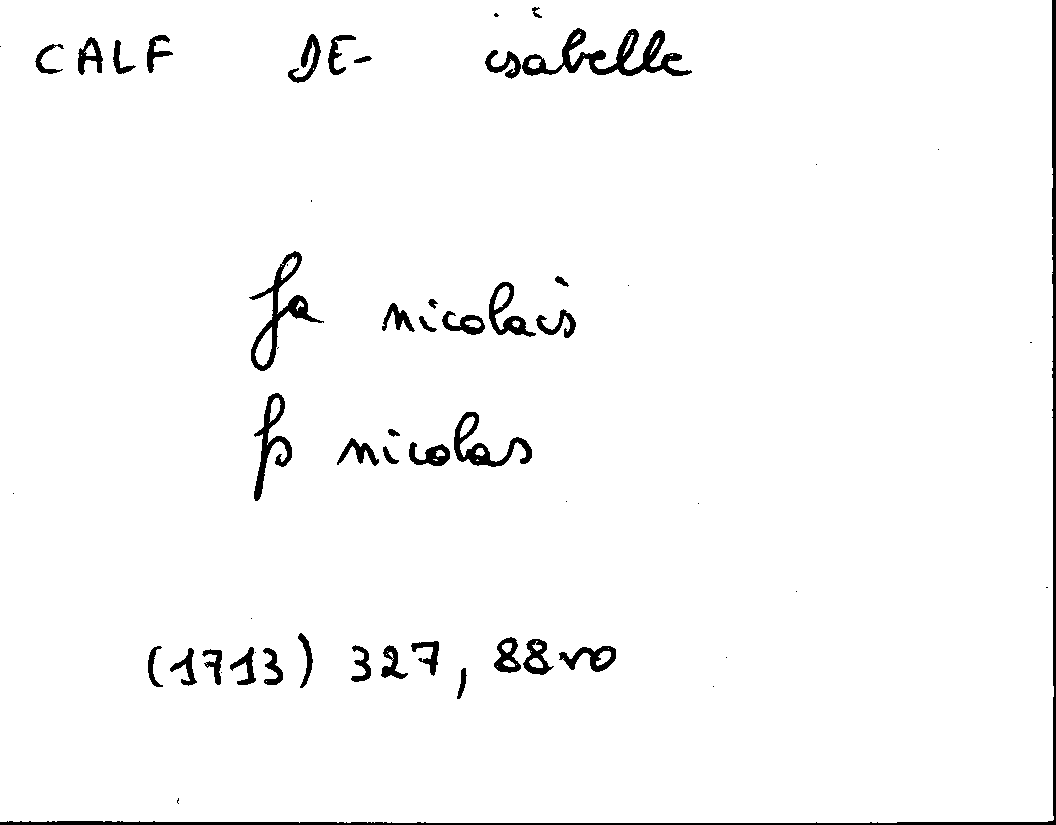 CALF DE- isabelle
fa nicolais
fs nicolas
(1713) 327, 88vo